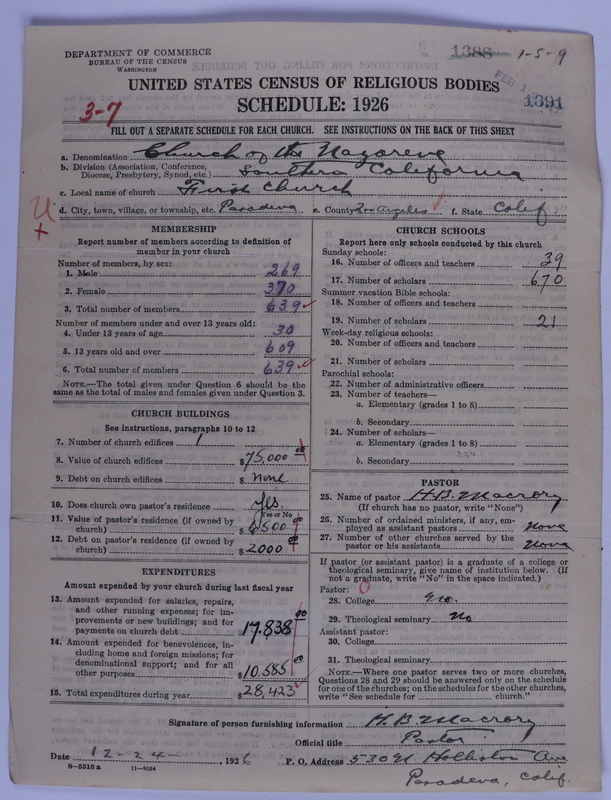 DEPARTMENT OF COMMERCE
BUREAU OF THE CENSUS
WASHINGTON
1388 1-5-9
FEB 1
1391
UNITED STATES CENSUS OF RELIGIOUS BODIES
SCHEDULE: 1926
3-7
FILL OUT A SEPARATE SCHEDULE FOR EACH CHURCH. SEE INSTRUCTIONS ON THE BACK OF THIS SHEET
a. Denomination Church of the Nazarene
b. Division (Association, Conference, Diocese, Presbytery, Synod, etc.) Southern California
c. Local name of church First Church
d. City, town, village, or township, etc. Pasadena e. County Los Angeles f. State Calif.
MEMBERSHIP
Report number of members according to definition of
member in your church
Number of members, by sex:
1. Male 269
2. Female 370
3. Total number of members 639
Number of members under and over 13 years old:
4. Under 13 years of age 30
5. 13 years old and over 609
6. Total number of members 639
NOTE.—The total given under Question 6 should be the
same as the total of males and females given under Question 3.
CHURCH BUILDINGS
See instructions, paragraphs 10 to 12
7. Number of church edifices 1
8. Value of church edifices $75,000 00
9. Debt on church edifices $ none
10. Does church own pastor's residence Yes.
Yes or No
11. Value of pastor's residence (if owned by
church) $6500 00
12. Debt on pastor's residence (if owned by
church) $2000 00
EXPENDITURES
Amount expended by your church during last fiscal year
13. Amount expended for salaries, repairs,
and other running expenses; for im-
provements or new buildings; and for
payments on church debt $17,838 00
14. Amount expended for benevolences, in-
cluding home and foreign missions; for
denominational support; and for all
other purposes $10,585
15. Total expenditures during year $28,423
CHURCH SCHOOLS
Report here only schools conducted by this church
Sunday schools:
16. Number of officers and teachers 39
17. Number of scholars 670
Summer vacation Bible schools:
18. Number of officers and teachers
19. Number of scholars 21
Week-day religious schools:
20. Number of officers and teachers
21. Number of scholars
Parochial schools:
22. Number of administrative officers
23. Number of teachers—
a. Elementary (grades 1 to 8)
b. Secondary
24. Number of scholars—
a. Elementary (grades 1 to 8)
b. Secondary
PASTOR
25. Name of pastor H.B. Macrory
(If church has no pastor, write "None")
26. Number of ordained ministers, if any, em-
ployed as assistant pastors None
27. Number of other churches served by the
pastor or his assistants None
If pastor (or assistant pastor) is a graduate of a college or
theological seminary, give name of institution below. (If
not a graduate, write "No" in the space indicated.)
Pastor:
28. College No.
29. Theological seminary No
Assistant pastor:
30. College
31. Theological seminary
NOTE.—Where one pastor serves two or more churches,
Questions 28 and 29 should be answered only on the schedule
for one of the churches; on the schedules for the other churches,
write "See schedule for church."
Signature of person furnishing information H.B. Macrory
Official title Pastor
Date 12-24-, 1926 P. O. Address 530 N. Holliston Ave
8-5519a 11-9034
Pasadena, Calif.